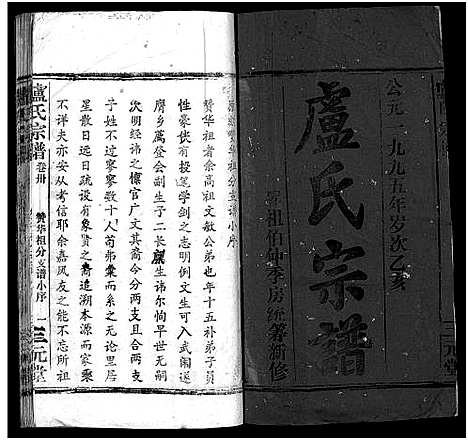 公元一九九五年岁次乙亥
盧氏宗譜
祖伯仲季房统筹新修
三元堂
赞华祖分支谱小序
赞华祖者余高祖文敏公弟也年十五补弟子员
性豪侠有投笔学剑之志明倒文生可入武闱遂
膺乡荐登会副生子二长生讳尔恂早世无嗣
次明经讳之懔官广文其裔今分两支且合两支
子姓不过寥寥数十人苟弗汇而系之无论里居
星散日远日疏设有象贤之裔追溯本源而家乘
不详夫亦安从考信耶余嘉风友之能不忘所祖
盧氏宗谱
卷卅
赞华祖分支谱小序
一
三元堂